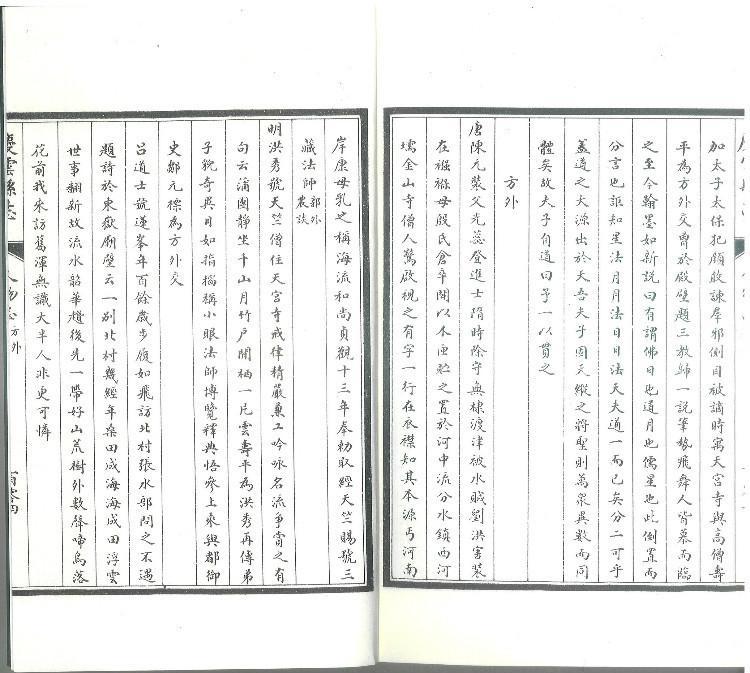 加太子太保犯顏敢諫羣邪側目被謫時寓天宮寺與高僧壽
平為方外交曾於殿壁題三教歸一說筆勢飛舞人皆慕而臨
之至今翰墨如新說曰有謂佛日也道月也儒星也此倒置而
分言也詎知星法月月法日日法天夫道一而已矣分二可乎
蓋道之大源出於天吾夫子固天縱之將聖則萬泉異數而同
體矣故夫子自道曰予一以貫之
方外
唐陳元奘父光蕊登進士隋時除守無棣渡津被水賊劉洪害奘
在襁褓母殷氏倉卒間以木匣貯之置於河中流分水鎮西河
壖金山寺僧人驚啟視之有字一行在衣襟知其本源丐河南
岸康母乳之稱海流和尚貞觀十三年奉勅取經天竺賜號三
藏法師郭外農談
明洪秀號天竺僧住天宮寺戒律精嚴兼工吟咏名流爭賞之有
句云蒲團靜坐千山月竹戶閒栖一片雲壽平為洪秀再傳弟
子貌奇異目如指搯稱小眼法師博覽釋典悟參上乘與都御
史鄒元標為方外交
呂道士號蓮峯年百餘歲步履如飛訪北村張水部問之不遇
題詩於東嶽廟壁云一別北村幾經年桑田成海海成田浮雲
世事翻新故流水韶華趲後先一帶好山荒樹外數聲啼鳥落
花前我來訪舊渾無識大半人非更可憐
慶雲縣志
人物志 方外